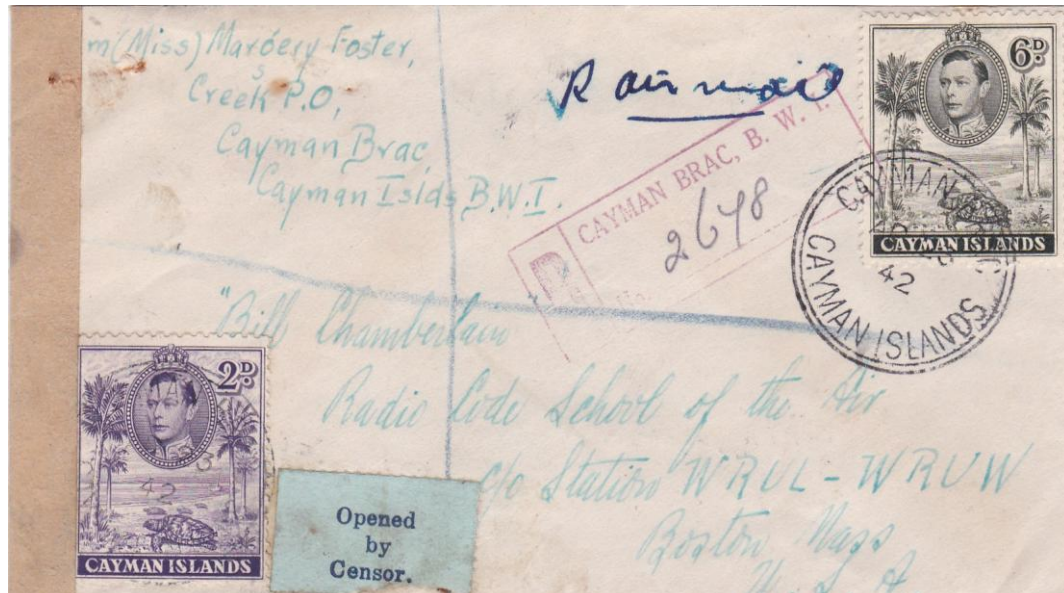 m (Miss) Margery Foster,
Creek P.O,
Cayman Brac,
Cayman Islds B.W.I.
R air mail
R
CAYMAN BRAC, B. W. I.
2648
6D
CAYMAN ISLANDS
CAYMAN BRAC
42
CAYMAN ISLANDS
"Bill Chamberlain
Radio Code School of the Air
c/o Station WRUL - WRUW
Boston Mass
U. S. A
2D
42
CAYMAN ISLANDS
Opened
by
Censor.